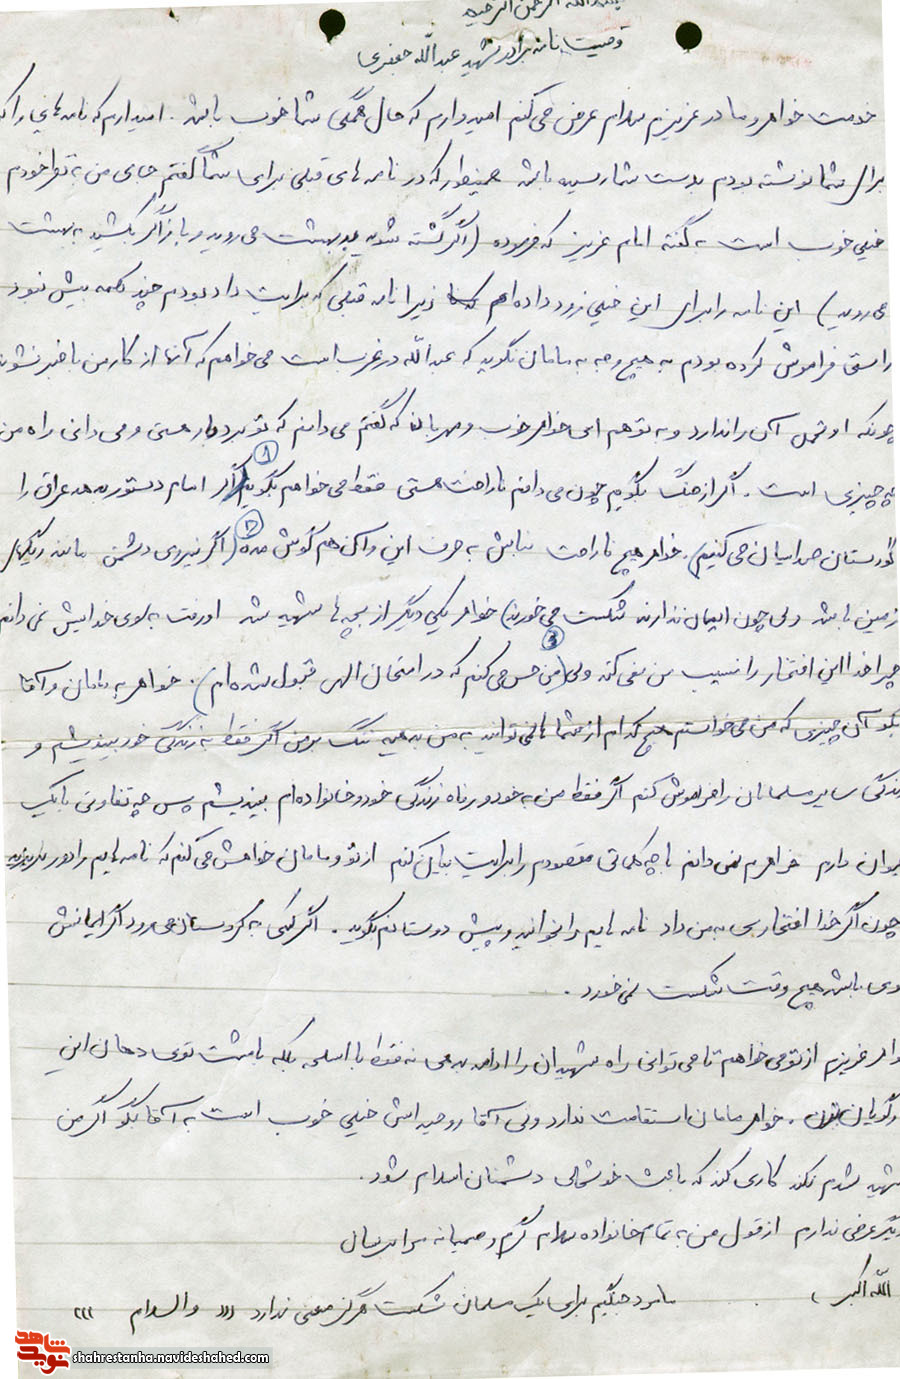 بسم الله الرحمن الرحیم
وصیت نامه برادر شهید عبدالله جعفری
خدمت خواهر و مادر عزیزم سلام عرض می کنم امیدوارم که حال همگی شما خوب باشد. امیدوارم که نامه هایی را که
برای شما نوشته بودم بدست شما رسیده باشد همینطور که در نامه های قبلی برای شما گفتم جای من به قول خودم
خیلی خوب است به گفته امام عزیز که فرموده (اگر کشته شوید به بهشت می روید و باز اگر بکشید به بهشت
می روید) این نامه را برای این خیلی زود داده ام زیرا نامه قبلی که برایت داده بودم چند کلمه بیش نبود
راستی فراموش کرده بودم به هیچ وجه به مامان نگوید که عبدالله در غرب است می خواهم که آنها از کار من با خبر نشوند
چونکه او تحمل آن را ندارد و به تو هم ای خواهر خوب و مهربان که گفتم می دانم که تو بردبار هستی و می دانی راه من
چه چیزی است. اگر از جنگ بگویم چون می دانم ناراحت هستی فقط می خواهم بگویم اگر امام دستور بدهد عراق را
گورستان صدامیان می کنیم). خواهر هیچ ناراحت نباش به حرف این و آن هم گوش مده (اگر نیروی دشمن مانند ریگهای
زمین باشد ولی چون ایمان ندارند شکست می خورند) خواهر یکی دیگر از بچه ها شهید شد او رفت بسوی خدایش نمی دانم
چرا خدا این افتخار را نسیب من نمی کند ولی (من حس می کنم که در امتحان الهی قبول شده ام). خواهر به مامان و آقا
بگو آن چیزی که من می خواستم هیچ کدام از شما ها نمی توانید به من بدهید ننگ بر من اگر فقط به زندگی خود بیندیشم و
زندگی سایر مسلمانان را فراموش کنم اگر فقط من به خود و رفاه زندگی خود و خانواده ام بیندیشم پس چه تفاوتی با یک
حیوان دارم خواهرم نمی دانم با چه کلماتی مقصودم را برایت بیان کنم از تو و مامان خواهش می کنم که نامه هایم را دور نریزید
چون اگر خدا افتخاری به من داد نامه هایم را بخوانید و پیش دوستانم بگوید. اگر کسی به کردستان می رود اگر ایمانش
قوی باشد هیچ وقت شکست نمی خورد.
خواهر عزیزم از تو می خواهم تا می توانی راه شهیدان را ادامه بدهی نه فقط با اسلحه بلکه با مشت توی دهان این
بزن. خواهر مامان استقامت ندارد ولی آقا روحیه اش خیلی خوب است به آقا بگو اگر من
شهید شدم نکند کاری کند که باعث خوشحالی دشمنان اسلام شود.
دیگر عرضی ندارم از قول من به تمام خانواده سلام گرم و صمیمانه مرا برسان
الله اکبر ما مرد جنگیم برای یک مسلمان شکست هرگز معنی ندارد ((( والسلام )))
شاهد
نوید
shahrestanha.navideshahed.com